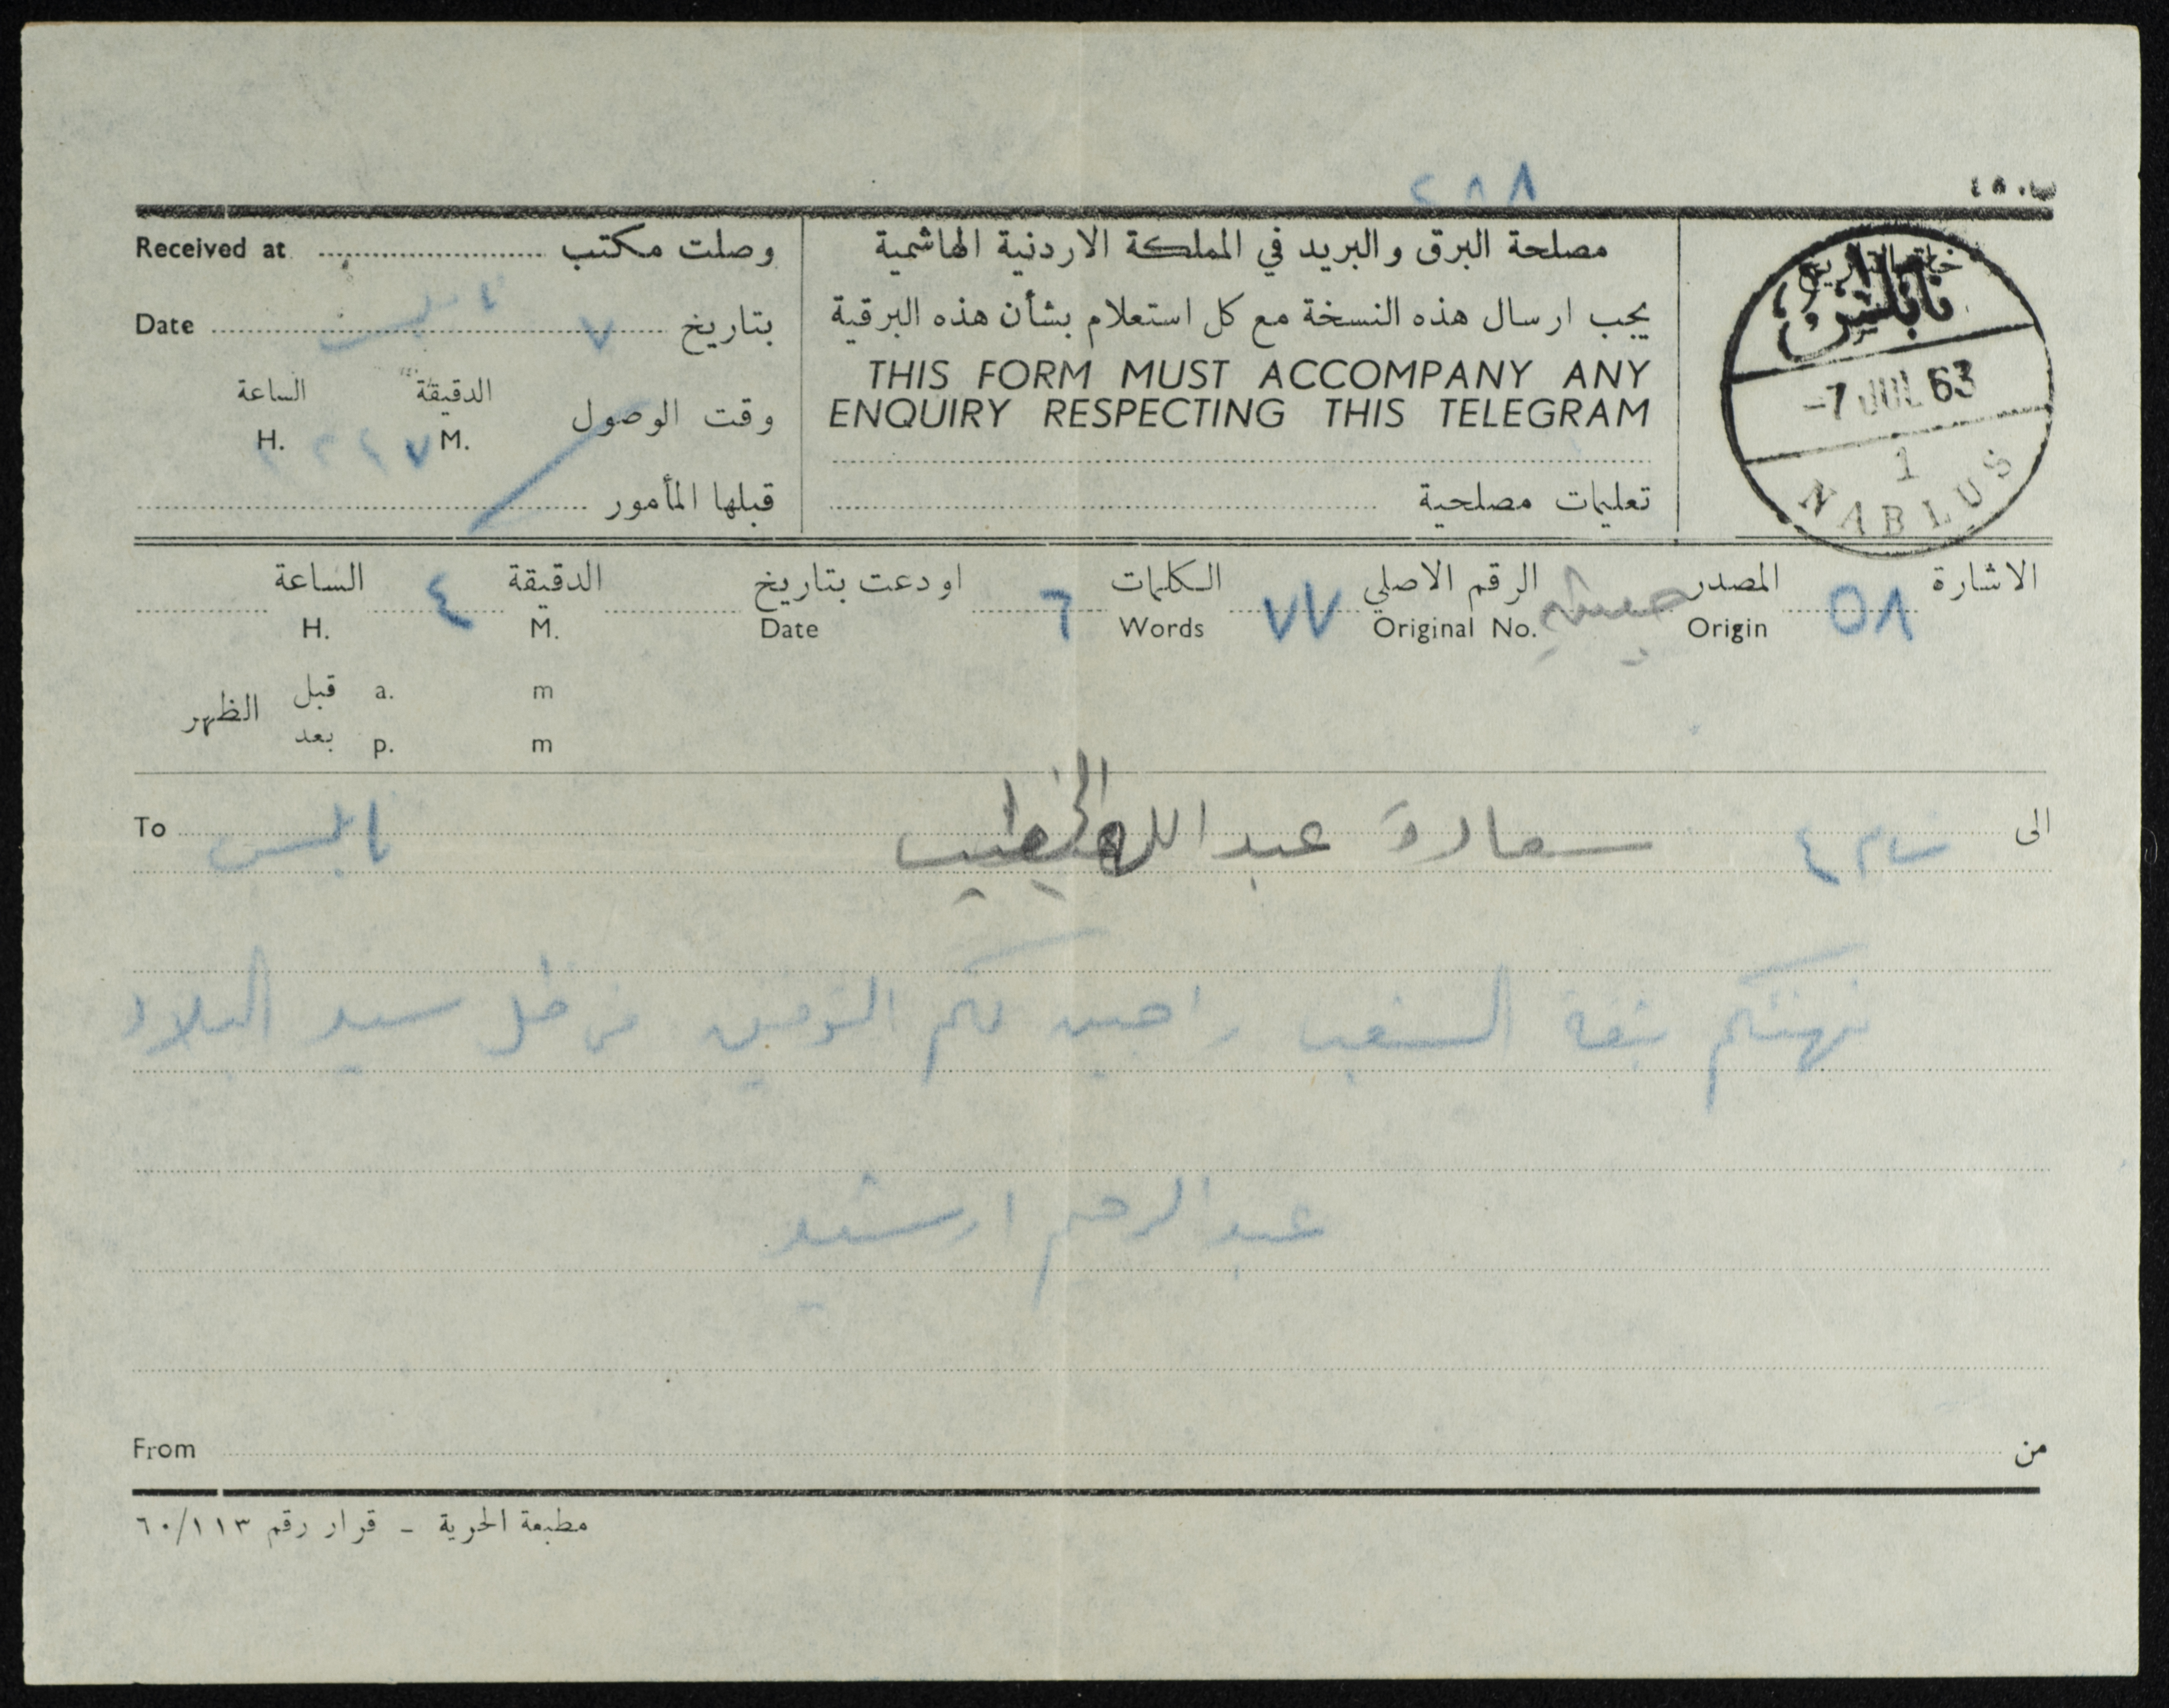 ٢٨٨
ب.٤٨
Received at وصلت مكتب
مصلحة البرق والبريد في المملكة الاردنية الهاشمية
Date بتاريخ ٧ نابلس
يجب ارسال هذه النسخة مع كل استعلام بشأن هذه البرقية
THIS FORM MUST ACCOMPANY ANY
ENQUIRY RESPECTING THIS TELEGRAM
الساعة الدقيقة
وقت الوصول
H. M.
قبلها المأمور
تعليمات مصلحية
نابلس
-7 JUL 63
1
NABLUS
الاشارة ٥٨ المصدر الرقم الاصلي ٧٧ الكلمات ٦ اودعت بتاريخ الدقيقة ٤ الساعة
Origin Original No. Words Date M. H.
قبل a. m
الظهر
بعد p. m
الى سعادة عبد الله الخطيب نابلس To
نهنئكم بثقة الشعب راجين لكم التوفيق في ظل سيد البلاد
عبد الرحيم ارشيد
From من
مطبعة الحرية - قرار رقم ٦٠/١١٣